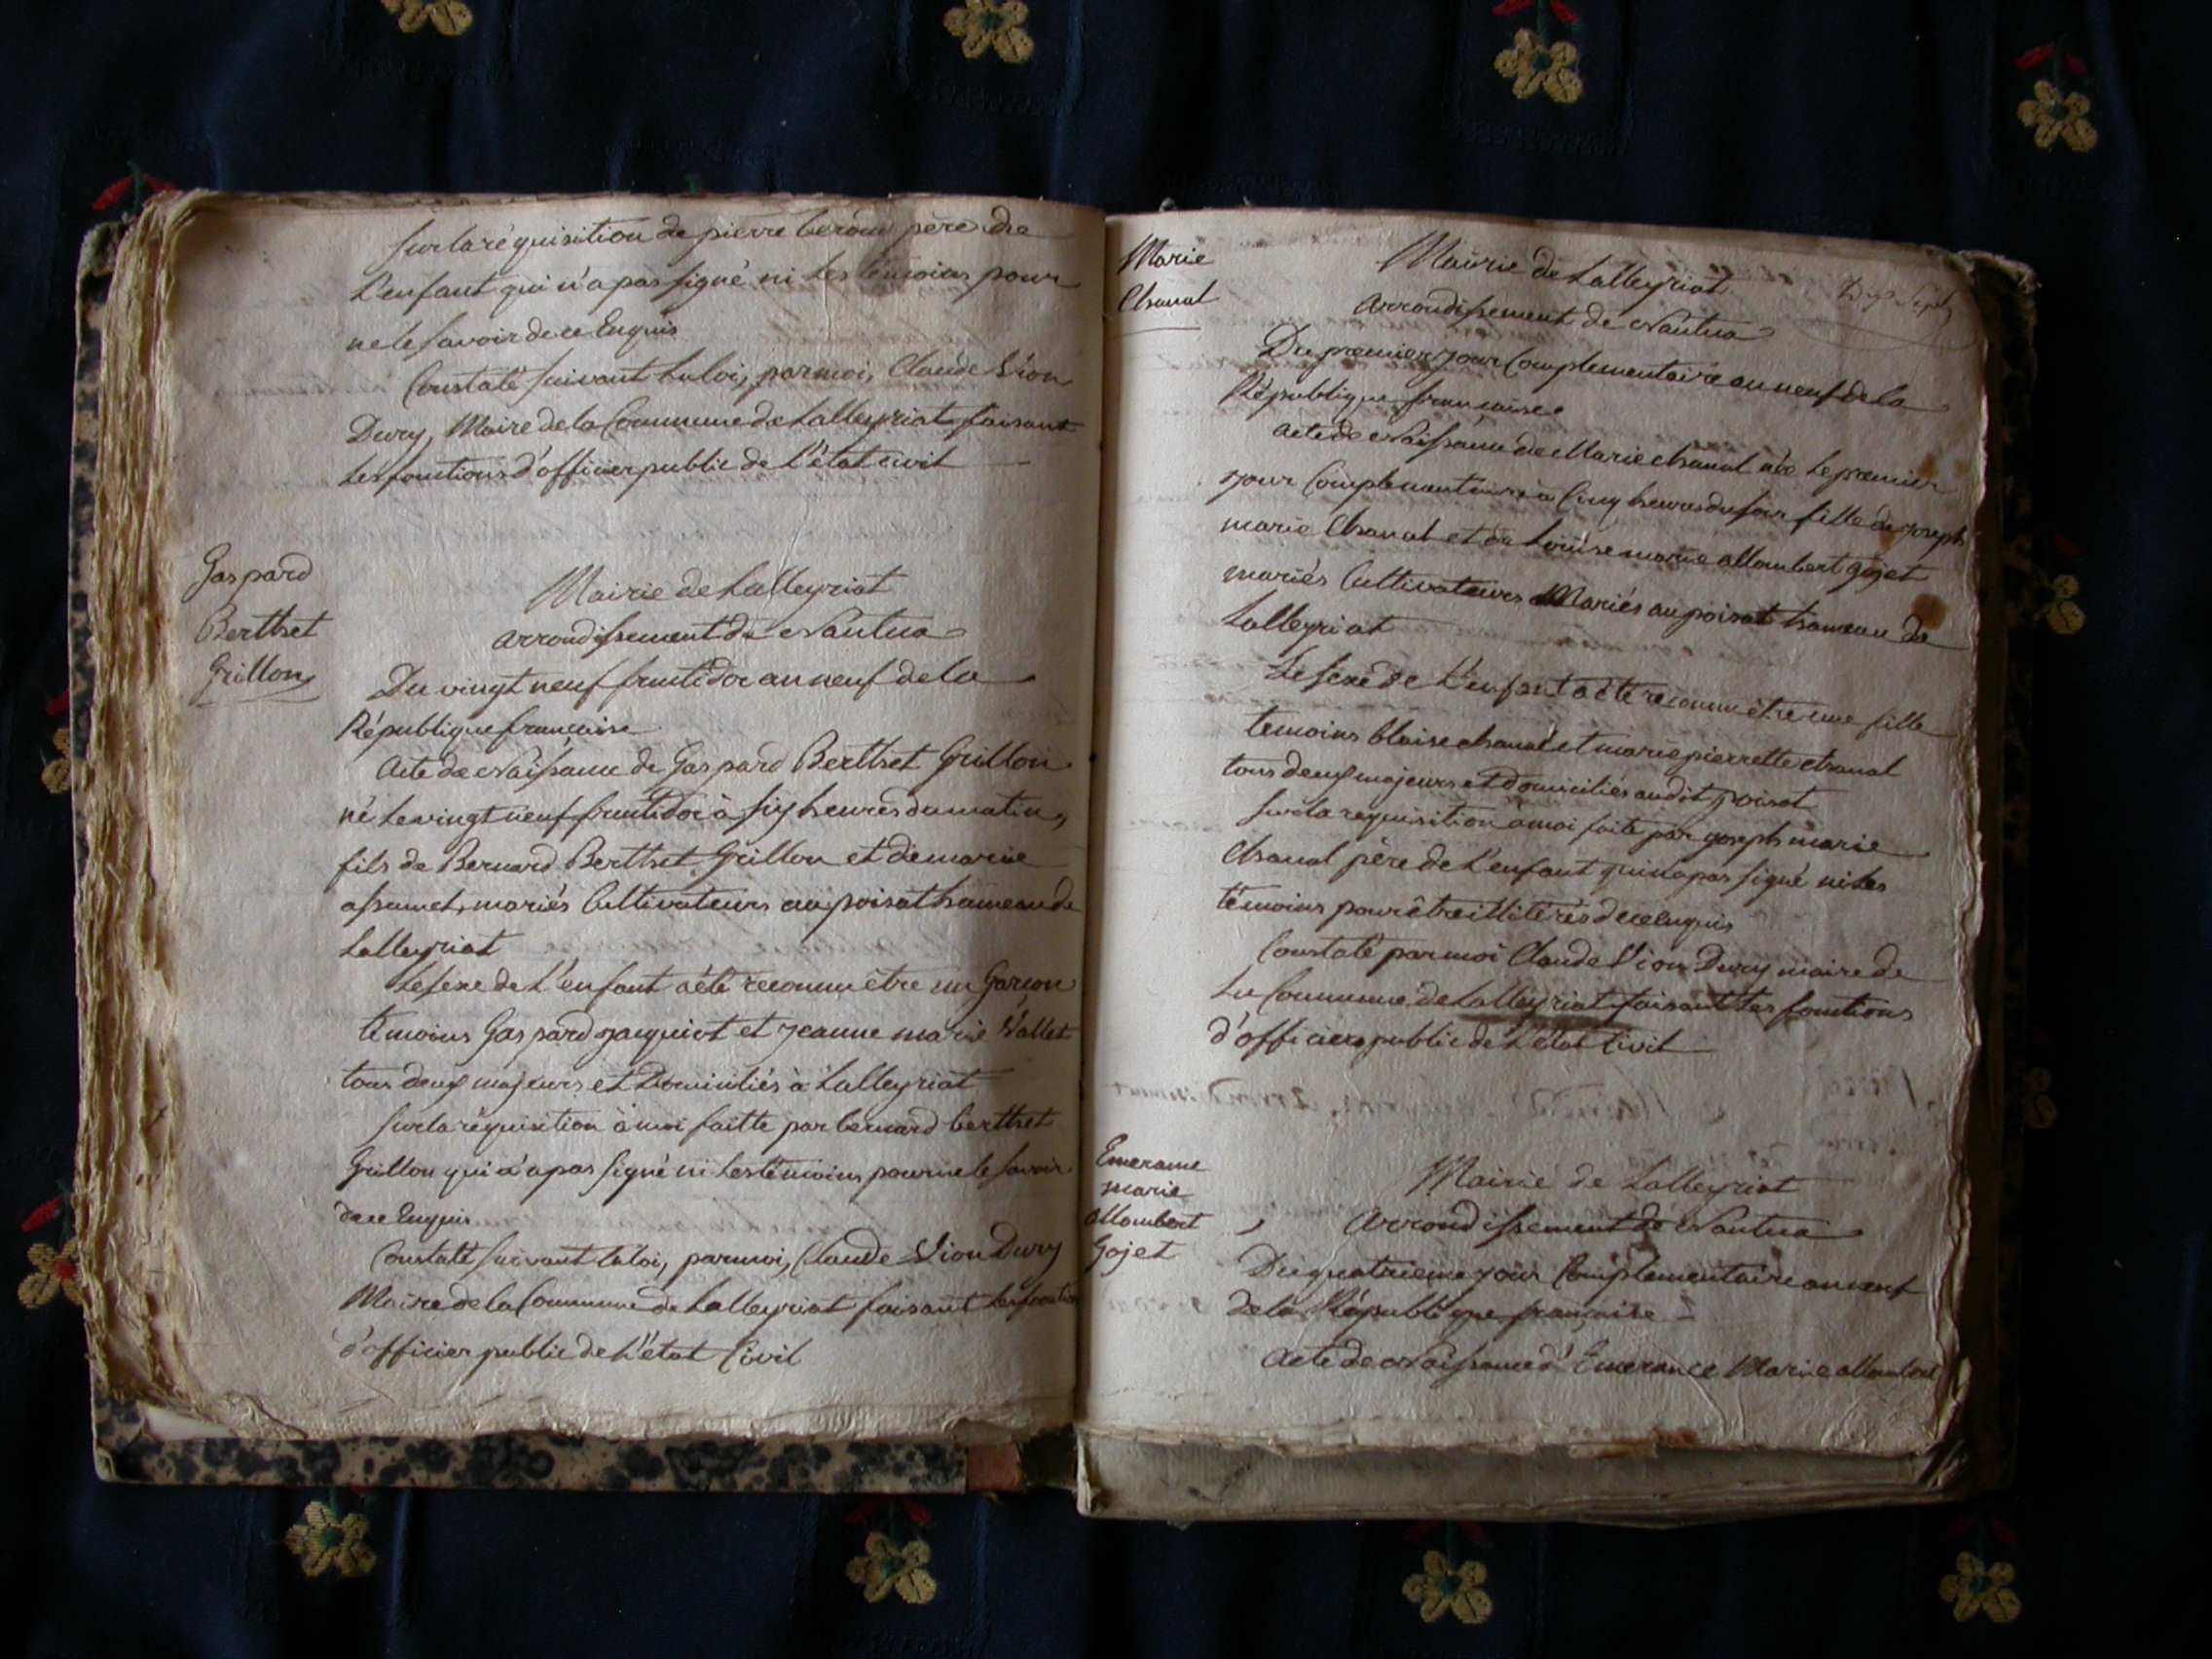 sur la réquisition de pierre beroud père de
L'enfant qui n'a pas signé ni les témoins pour
ne le savoir de ce Enquis
Constaté suivant la loi, par moi, Claude Vion
Dury, Maire de la Commune de Lalleyriat faisant
les fonctions d'officier public de l'état civil
Gaspard
Berthet
Grillon
Mairie de Lalleyriat
arrondissement de Nantua
Du vingt neuf fructidor an neuf de la
République française
Acte de Naissance de Gaspard Berthet Grillon
né le vingt neuf fructidor à six heures du matin,
fils de Bernard Berthet Grillon et de marie
assumet, mariés Cultivateurs au poisat hameau de
Lalleyriat
Le sexe de L'enfant a été reconnu être un Garçon
témoins Gaspard jacquiot et jeanne marie Vallet
tous deux majeurs et Domiciliés à Lalleyriat
sur la réquisition à moi faitte par bernard berthet
Grillon qui n'a pas signé ni les témoins pour ne le savoir
de ce Enquis
Constaté suivant la loi, par moi, Claude Vion Dury
Maire de la Commune de Lalleyriat faisant les fonctions
d'officier public de L'état Civil
Marie
Chanal
Mairie de Lalleyriat
Dix Sept
arrondissement de Nantua
Du premier jour Complementaire an neuf de la
République française
Acte de Naissance de Marie chanal née le premier
jour Complementaire à Cinq heures du soir fille de joseph
marie Chanal et de Louise marie allombert Gojet
mariés Cultivateurs Mariés au poisat hameau de
Lalleyriat
Le sexe de L'enfant a été reconnu être une fille
temoins blaise chanal et marie pierrette chanal
tous deux majeurs et domiciliés audit poisat
sur la requisition à moi faite par joseph marie
Chanal père de L'enfant qui n'a pas signé ni les
témoins pour être illitérés de ce enquis
Constaté par moi Claude Vion Dury maire de
La Commune de Lalleyriat faisant les fonctions
d'officier public de L'état Civil
Emerance
marie
allombert
Gojet
Mairie de Lalleyriat
Arrondissement de Nantua
Du quatrieme jour Complementaire an neuf
de la République française
Acte de Naissance d'Emerance Marie allombert